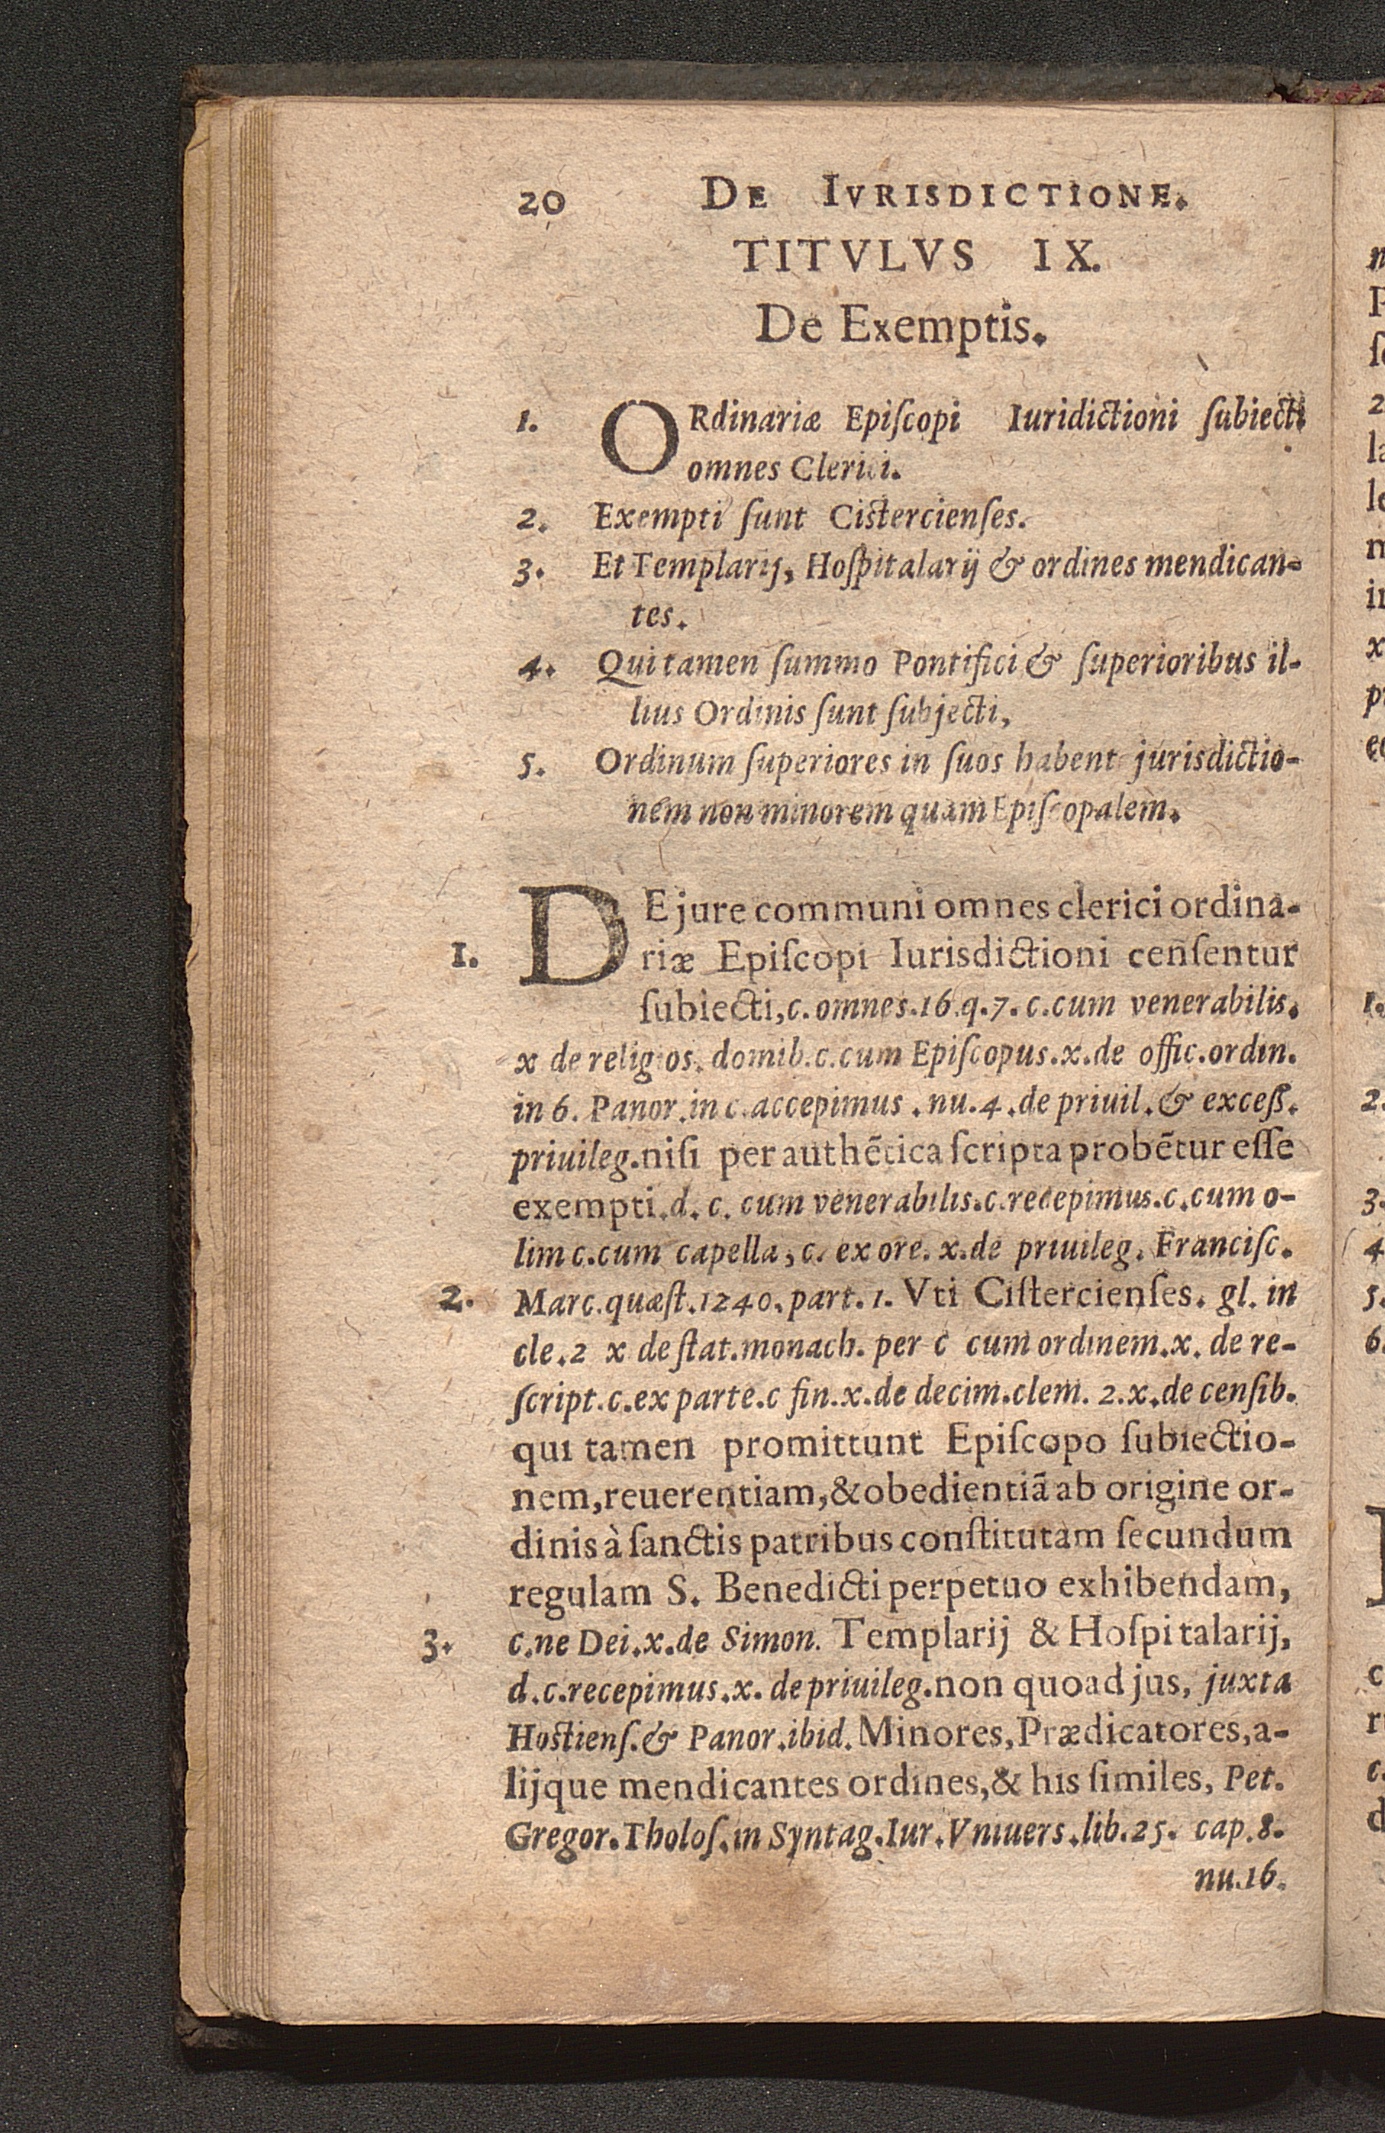 20 DE IVRISDICTIONE.
TITVLVS IX.
De Exemptis.
1. ORdinariæ Epiſcopi Iuridictioni ſubiecti
omnes Clerici.
2. Exempti ſunt Ciſtercienſes.
3. Et Templarij, Hoſpitalarij & ordines mendican-
tes.
4. Qui tamen ſummo Pontifici & ſuperioribus il-
lius Ordinis ſunt ſubjecti,
5. Ordinum ſuperiores in ſuos habent jurisdictio-
nem non minorem quam Epiſcopalem.
DE jure communi omnes clerici ordina-
1. riæ Epiſcopi Iurisdictioni cenſentur
ſubiecti, c. omnes. 16. q. 7. c. cum venerabilis.
x de religios. domib. c. cum Epiſcopus. x. de offic. ordin.
in 6. Panor. in c. accepimus. nu. 4. de priuil. & exceß.
priuileg. niſi per authẽtica ſcripta probẽtur eſſe
exempti. d. c. cum venerabilis. c. recepimus. c. cum o-
lim c. cum capella, c. ex ore. x. de priuileg. Franciſc.
2. Marc. quæſt. 1240. part. 1. Vti Ciſtercienſes. gl. in
cle. 2 x de ſtat. monach. per c cum ordinem. x. de re-
ſcript. c. ex parte. c fin. x. de decim. clem. 2. x. de cenſib.
qui tamen promittunt Epiſcopo ſubiectio-
nem, reuerentiam, & obedientiã ab origine or-
dinis à ſanctis patribus conſtitutam ſecundum
regulam S. Benedicti perpetuo exhibendam,
3. c. ne Dei. x. de Simon. Templarij & Hoſpitalarij,
d. c. recepimus. x. de priuileg. non quoad jus, juxta
Hoſtienſ. & Panor. ibid. Minores, Prædicatores, a-
lijque mendicantes ordines, & his ſimiles, Pet.
Gregor. Tholoſ. in Syntag. Iur. Vniuers. lib. 25. cap. 8.
nu. 16.